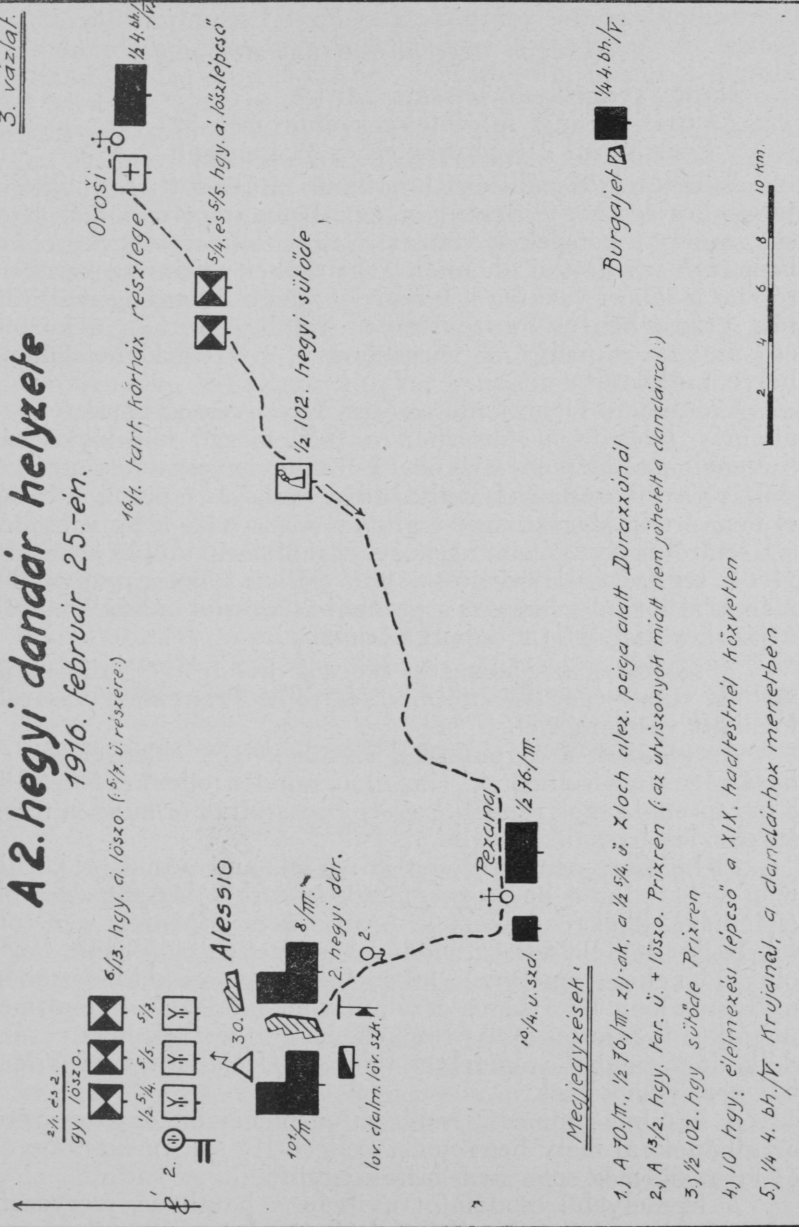 3. vázlat.
A 2. hegyi dandár helyzete
1916. február 25.-én.
2/1. és 2.
gy. lőszo.
6/13. hgy. á. lőszo. (: 5/7. ü. részére:)
½ 5/4. 5/5. 5/7.
2.
30. Alessio
101/II. 8/III.
2. hegyi ddr.
lov. dalm. löv. szk.
2.
10/4. u. szd.
Pezana
½ 76./III.
½ 102. hegyi sütőde
5/4. és 5/5. hgy. á. lőszlépcső
16/1. tart. kórház részlege
Oroši
½ 4. bh./V.
Burgajet
¼ 4. bh/V.
2 4 6 8 10 km.
Megjegyzések:
1.) A 70./II., ½ 76/III. zlj.-ak, a ½ 5/4. ü. Zloch alez. pága alatt Durazzónál
2.) A 13/2. hgy. tar. ü. + lőszo. Prizren (: az utviszonyok miatt nem jöhetett a dandárral:)
3.) ½ 102. hgy sütőde Prizren
4.) 10 hgy. élelmezési lépcső a XIX. hadtestnél közvetlen
5.) ¼ 4. bh./V. Krujanál, a dandárhoz menetben